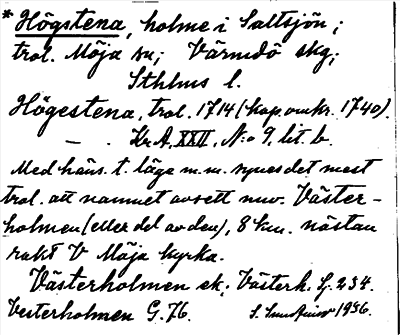 * Högstena, holme i Saltsjön;
trol. Möja sn; Värmdö skg;
Sthlms l.
Högestena, trol. 1714 (kop. omkr. 1740).
Kr. A. XXII, N:o 9, lit. b.
Med häns. t. läge m.m. synes det mest
trol. att namnet avsett nuv. Väster-
holmen (eller del av den), 8 km. nästan
rakt V Möja kyrka.
Västerholmen ek; Västerh. J. 234.
Vesterholmen G. 76. 1956.